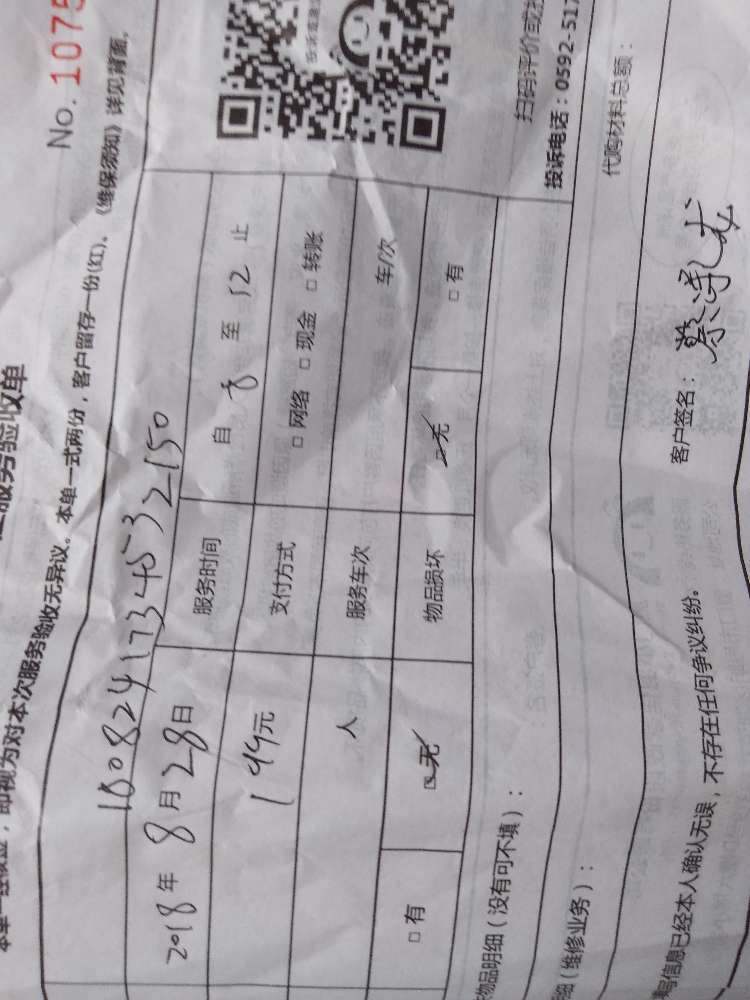 服务验收单
No. 1075
即视为对本次服务验收无异议。本单一式两份，客户留存一份(红)、《维保须知》详见背面。
1808241734532150
2018年8月28日 服务时间 自8至12止
199元 支付方式 □网络 □现金 □转账
人 服务车次 车/次
□有 □无 物品损坏 □无 □有
物品明细（没有可不填）：
扫码评价或
投诉电话：0592-517
（维修业务）：
代购材料总额：
写信息已经本人确认无误，不存在任何争议纠纷。 客户签名：